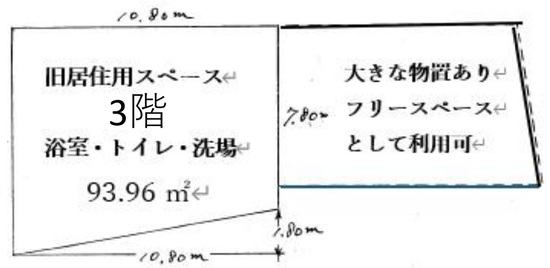 10.80m
旧居住用スペース↵
3階
浴室・トイレ・洗場
93.96 ㎡↵
大きな物置あり↵
フリースペース↵
として利用可↵
7.80m
1.80m
10.80m